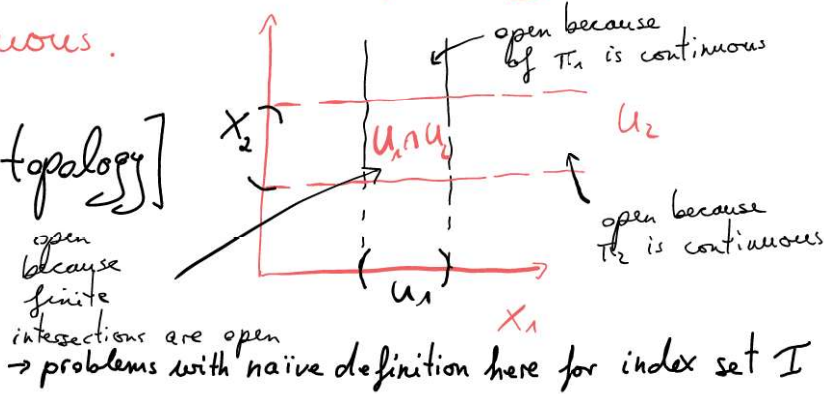 uous.
open because
of π₁ is continuous
topology]
X₂
U₁∩U₂
U₂
open because
π₂ is continuous
open
because
finite
intersections are open
( U₁ )
X₁
→ problems with naïve definition here for index set I